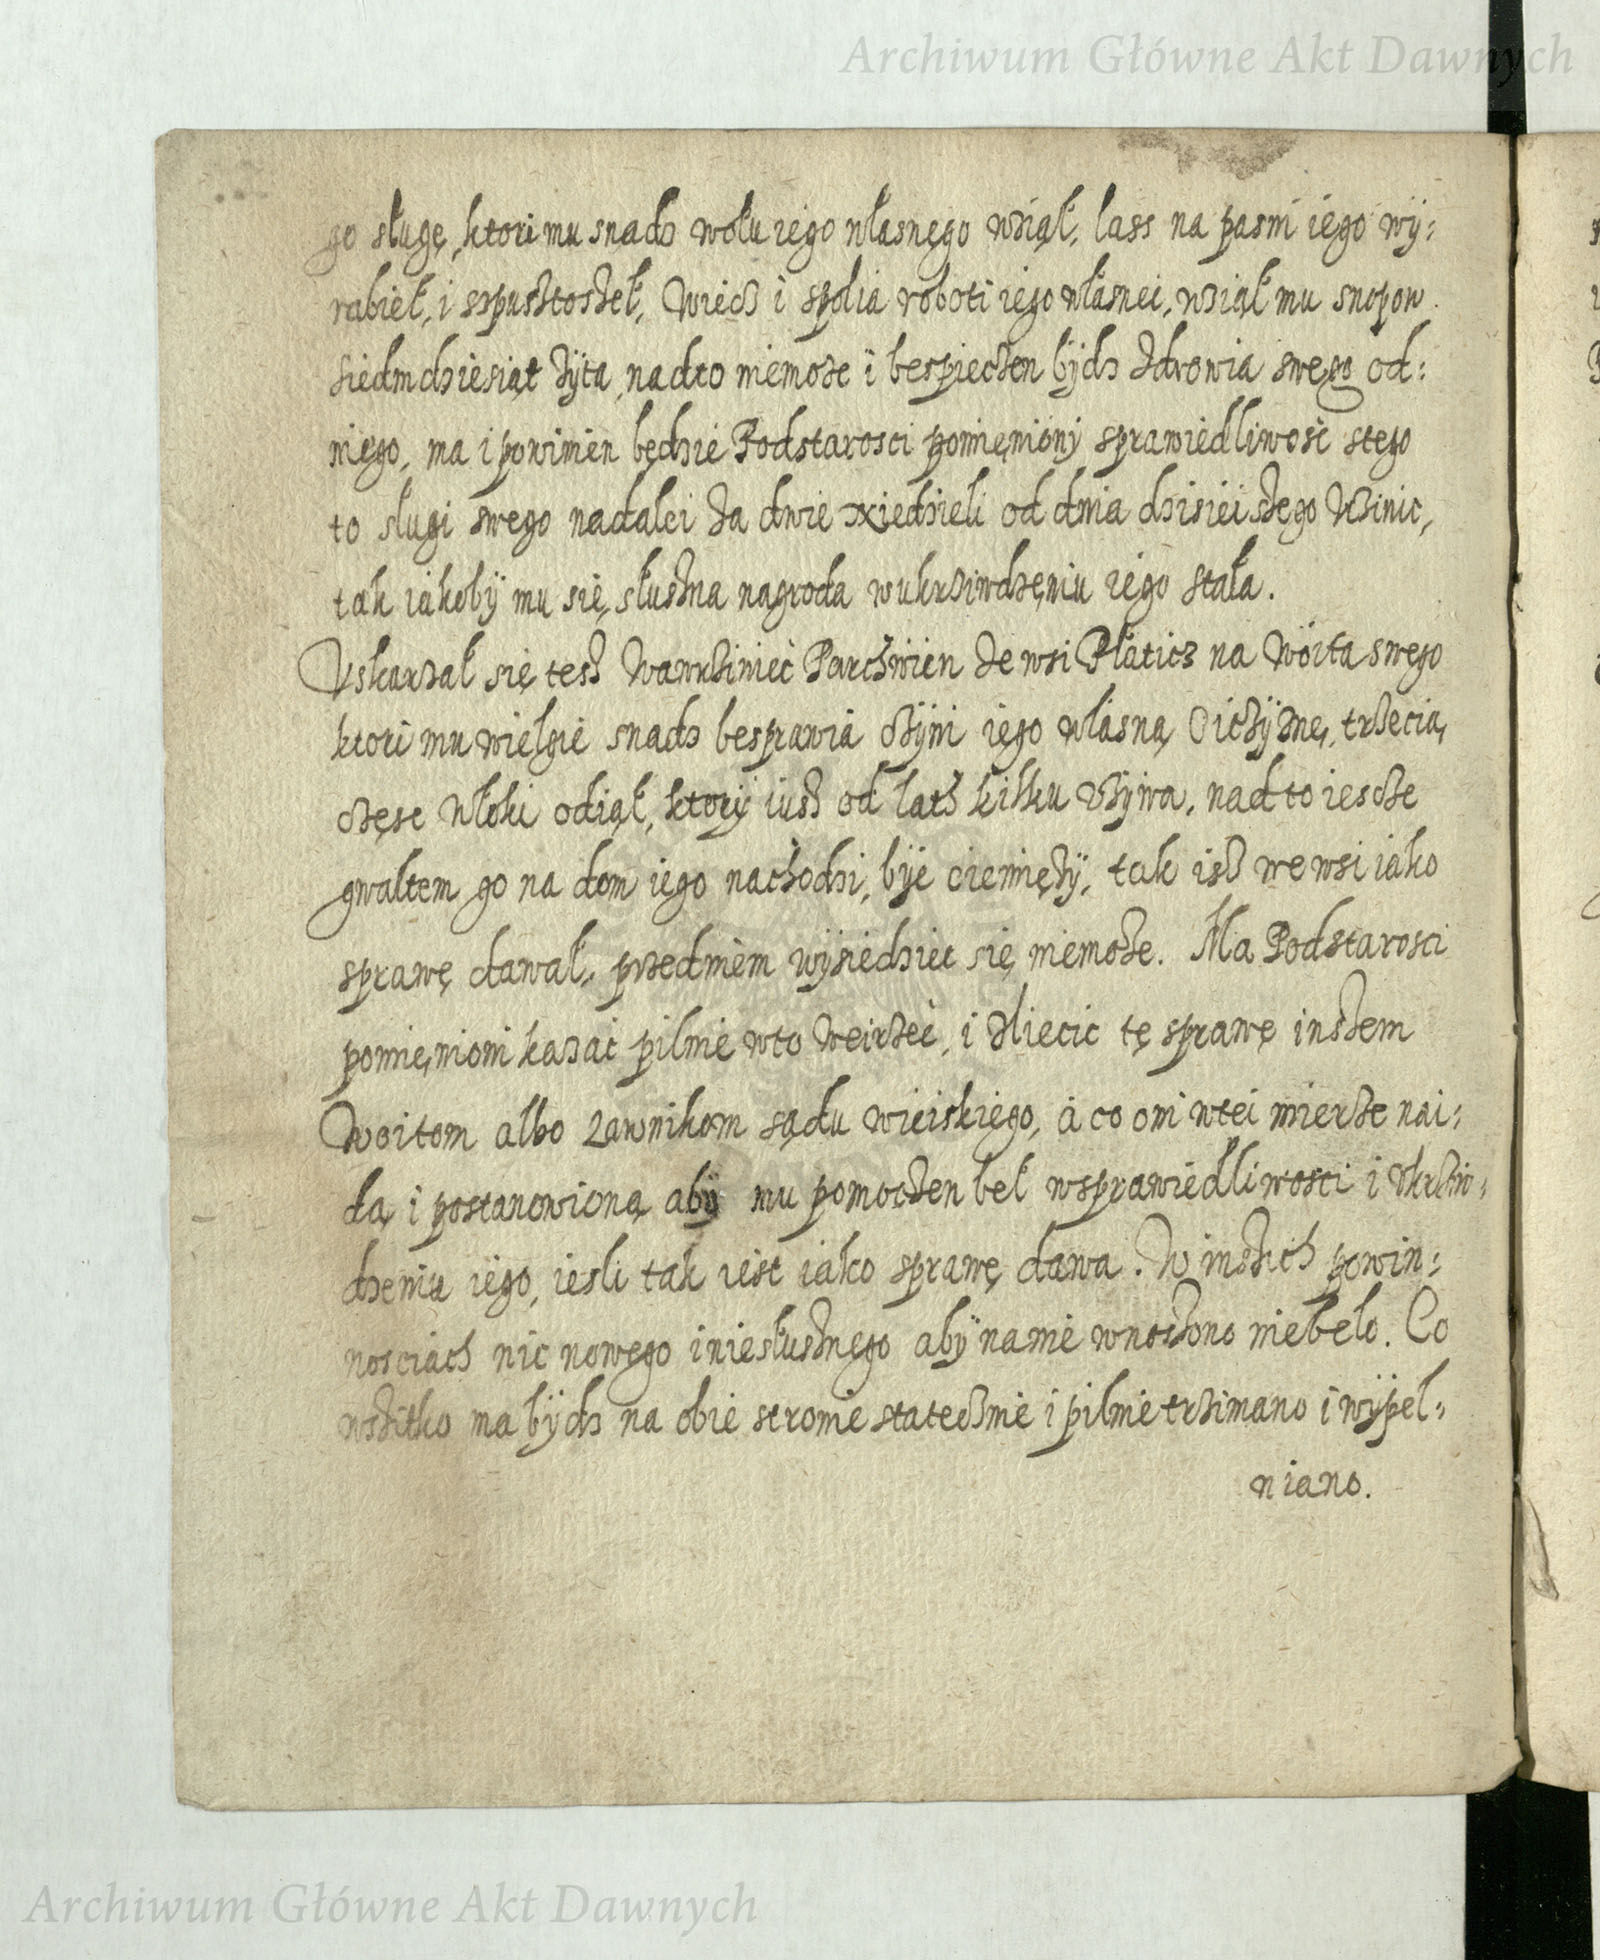 Archiwum Główne Akt Dawnych
go sługę, ktori mu snadz wołu iego własnęgo wziął, lass na pasni iego wÿ:
rabieł, i sspustoszeł, Wiecz i spolia roboti iego własnei, wziął mu snopow
siedmdziesiąt żÿta, nadto niemoże i bespieczen bÿdz zdrowia swego od:
niego, ma i powinien będzie Podstarosci pomięniony sprawiedliwość stego
to sługi swego nadalei za dwie niedzieli od dnia dzisieiszego Uczinic,
tak iakobÿ mu się, słuszna nagroda wukrziwdzęniu iego stała.
Uskarzał się tesz Wawrziniec Parchwien ze wsi Płaticz na Woita swego
ktori mu wielgie snadz besprawia czÿni iego własną Oiczÿznę, trzecią,
częsc włoki odiął, ktorÿ iusz od latħ kilku Użÿwa, nad to iescze
gwałtem go na dom iego nachodzi, bÿe ciemięzÿ, tak isz we wsi iako
sprawę dawał, przedniem wÿsiedziec się niemoże. Ma Podstarosci
pomięnioni kazać pilnie wto weirzeć, i zliecic tę sprawę inszem
Woitom albo Ławnikom sądu wieiskiego, a co oni wtei mierze nai:
dą i postanowioną abÿ mu pomoczen beł wsprawiedliwosci i Ukrziw:
dzeniu iego, iesli tak iest iako sprawę dawa. W inszich powin:
nosciach nic nowego i niesłusznego abÿ nanie wnoszono niebeło. Co
wszitko ma bÿdz na obie stronie statecznie i pilnie trzimano i wÿpeł:
niano.
Archiwum Główne Akt Dawnych